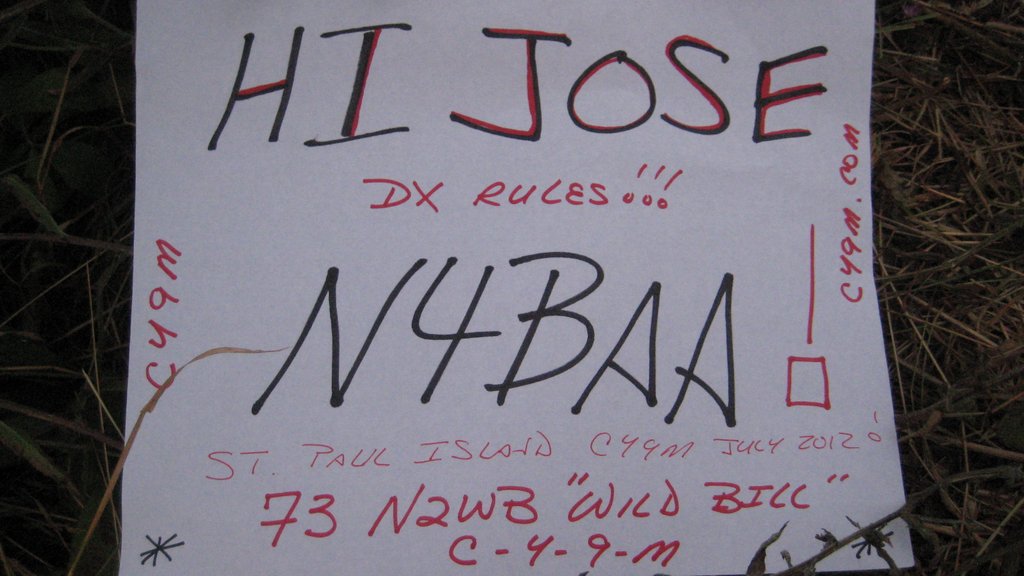 HI JOSE
DX RULES!!!
CY9M.COM
CY9M
N4BAA!
ST. PAUL ISLAND CY9M JULY 2012!
73 N2WB "WILD BILL"
C-Y-9-M